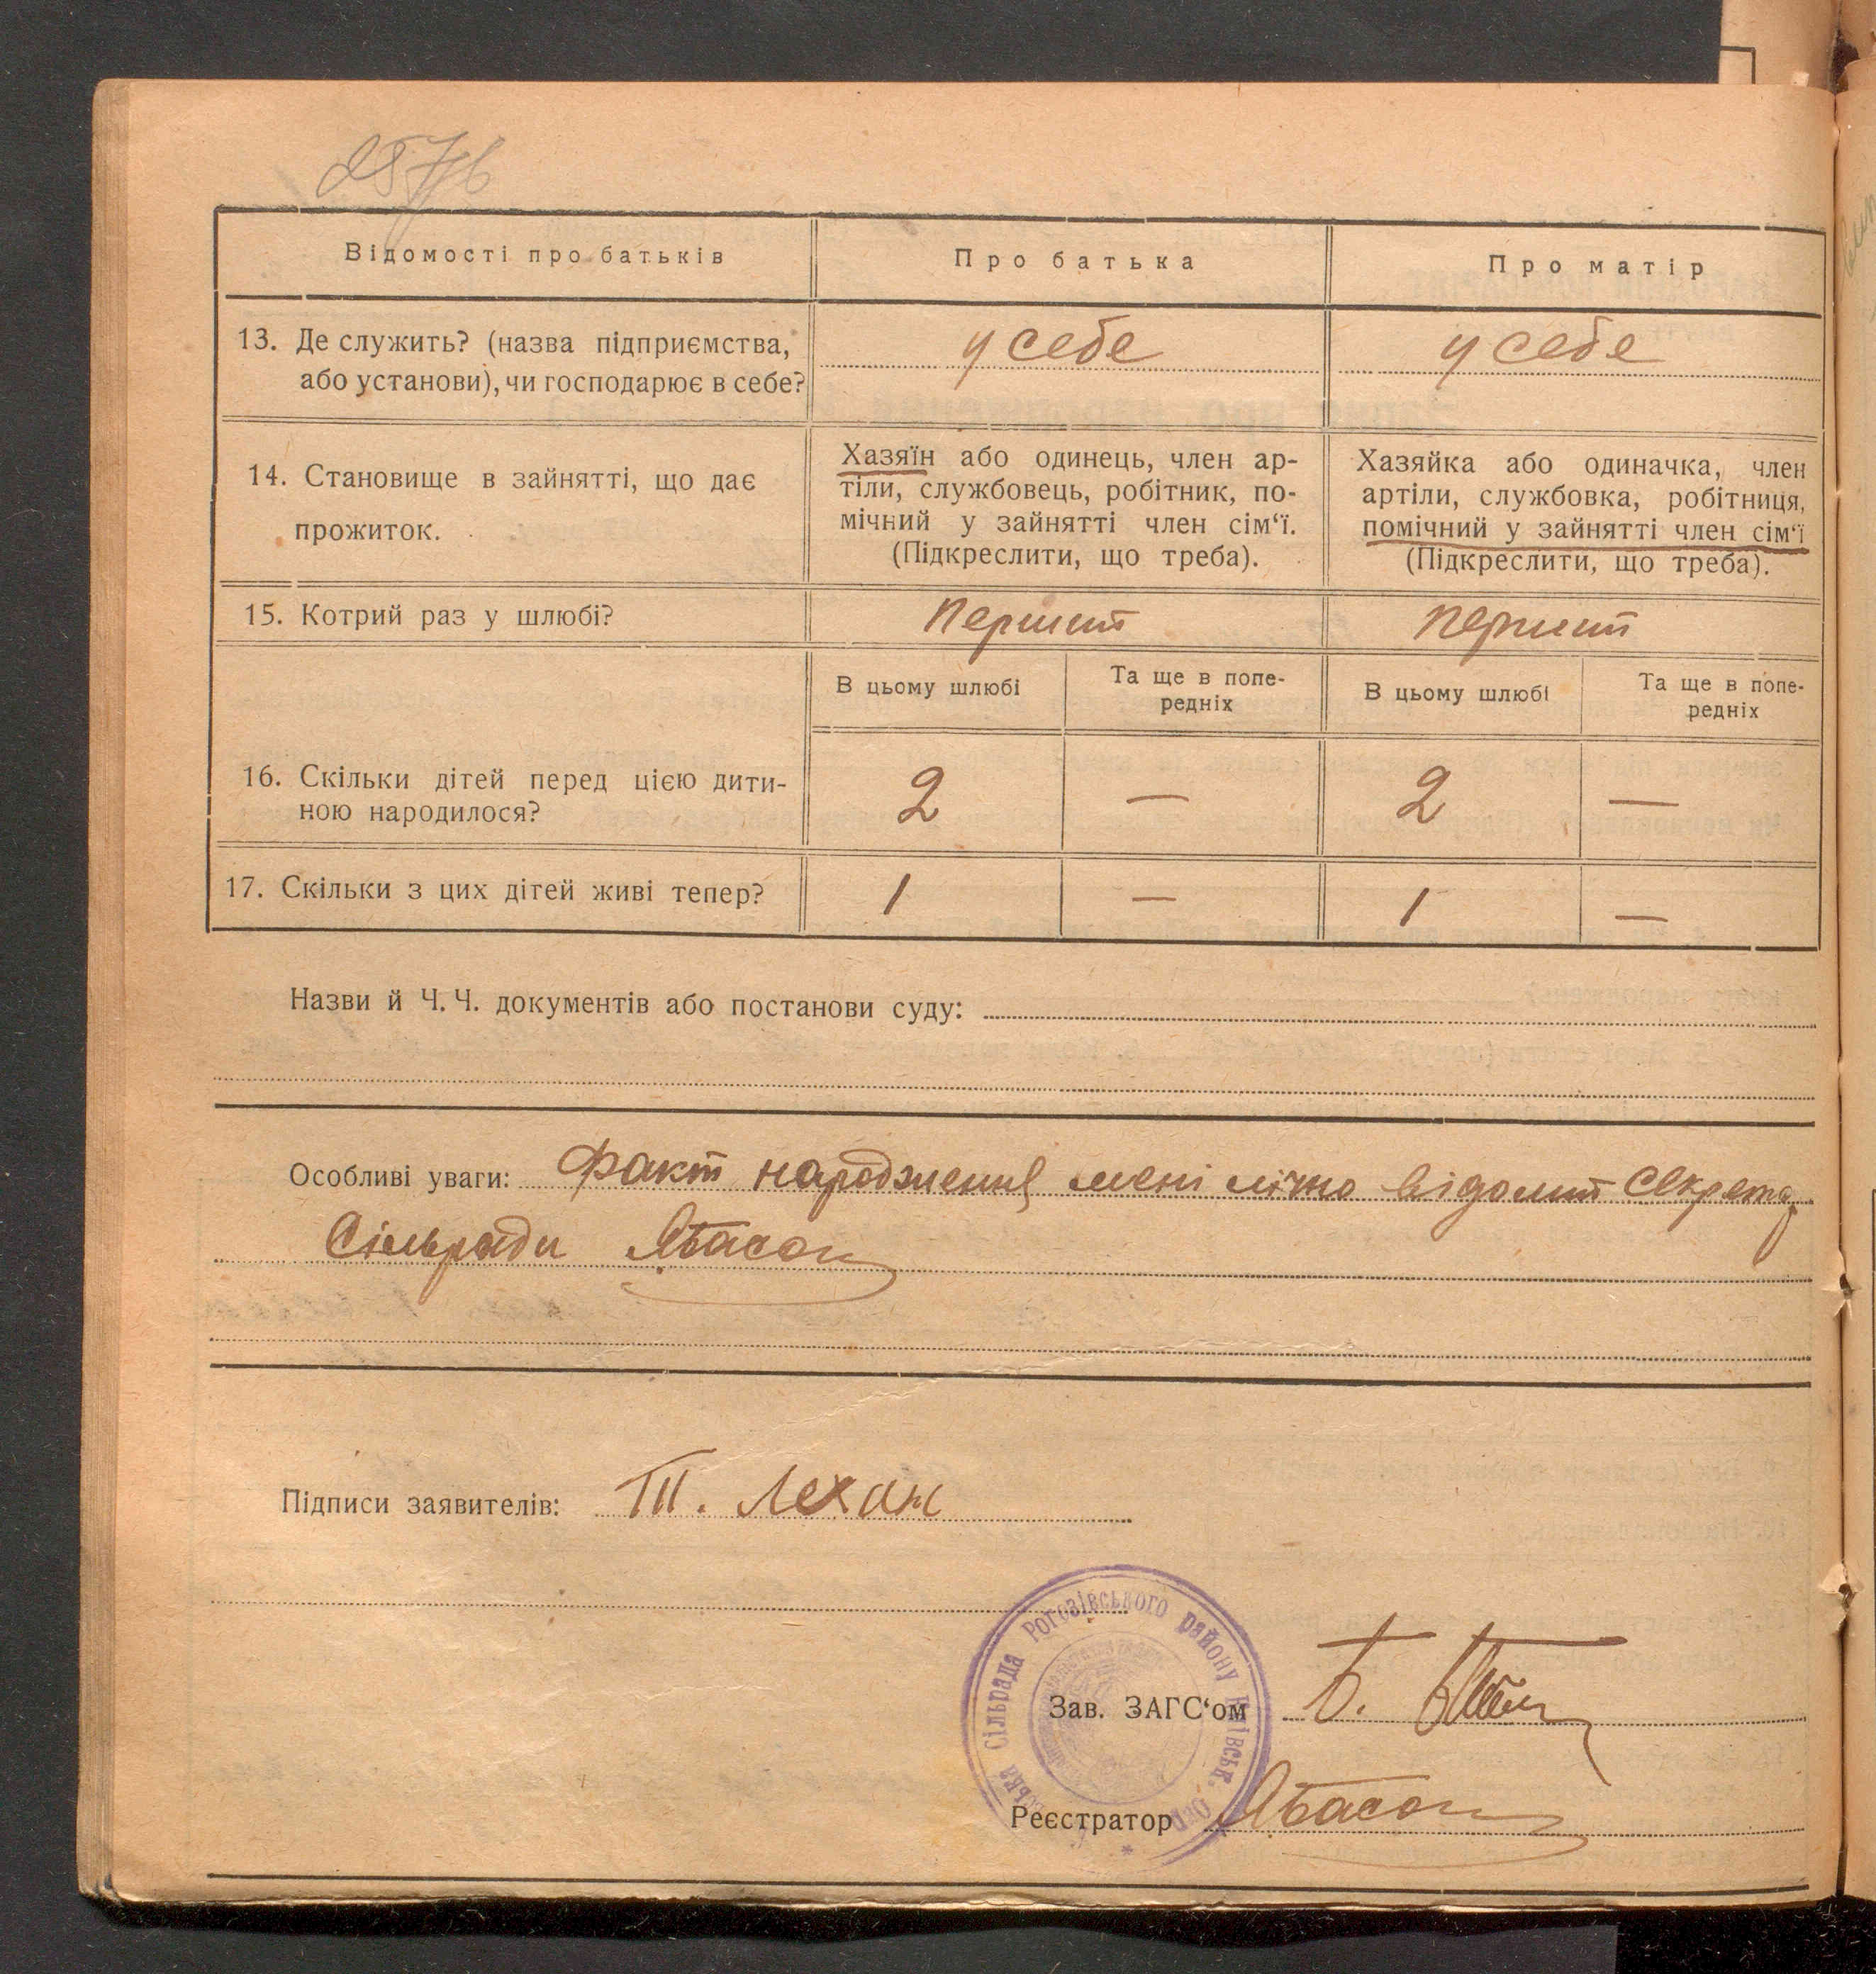 Відомості про батьків
Про батька
Про матір
13. Де служить? (назва підприємства,
або установи), чи господарює в себе?
у себе
у себе
14. Становище в зайнятті, що дає
прожиток.
Хазяїн або одинець, член ар-
тіли, службовець, робітник, по-
мічний у зайнятті член сім‘ї.
(Підкреслити, що треба).
Хазяйка або одиначка, член
артіли, службовка, робітниця,
помічний у зайнятті член сім‘ї
(Підкреслити, що треба).
15. Котрий раз у шлюбі?
перший
перший
В цьому шлюбі
Та ще в попе-
редніх
В цьому шлюбі
Та ще в попе-
редніх
16. Скільки дітей перед цією дити-
ною народилося?
2
—
2
—
17. Скільки з цих дітей живі тепер?
1
—
1
—
Назви й Ч. Ч. документів або постанови суду:
Особливі уваги: Факт народження мені лічно відомий Секретар
Сільради
Підписи заявителів: Лехан
Сільрада Рогозівського району Київськ. Окр.
Зав. ЗАГС‘ом Б.
Реєстратор